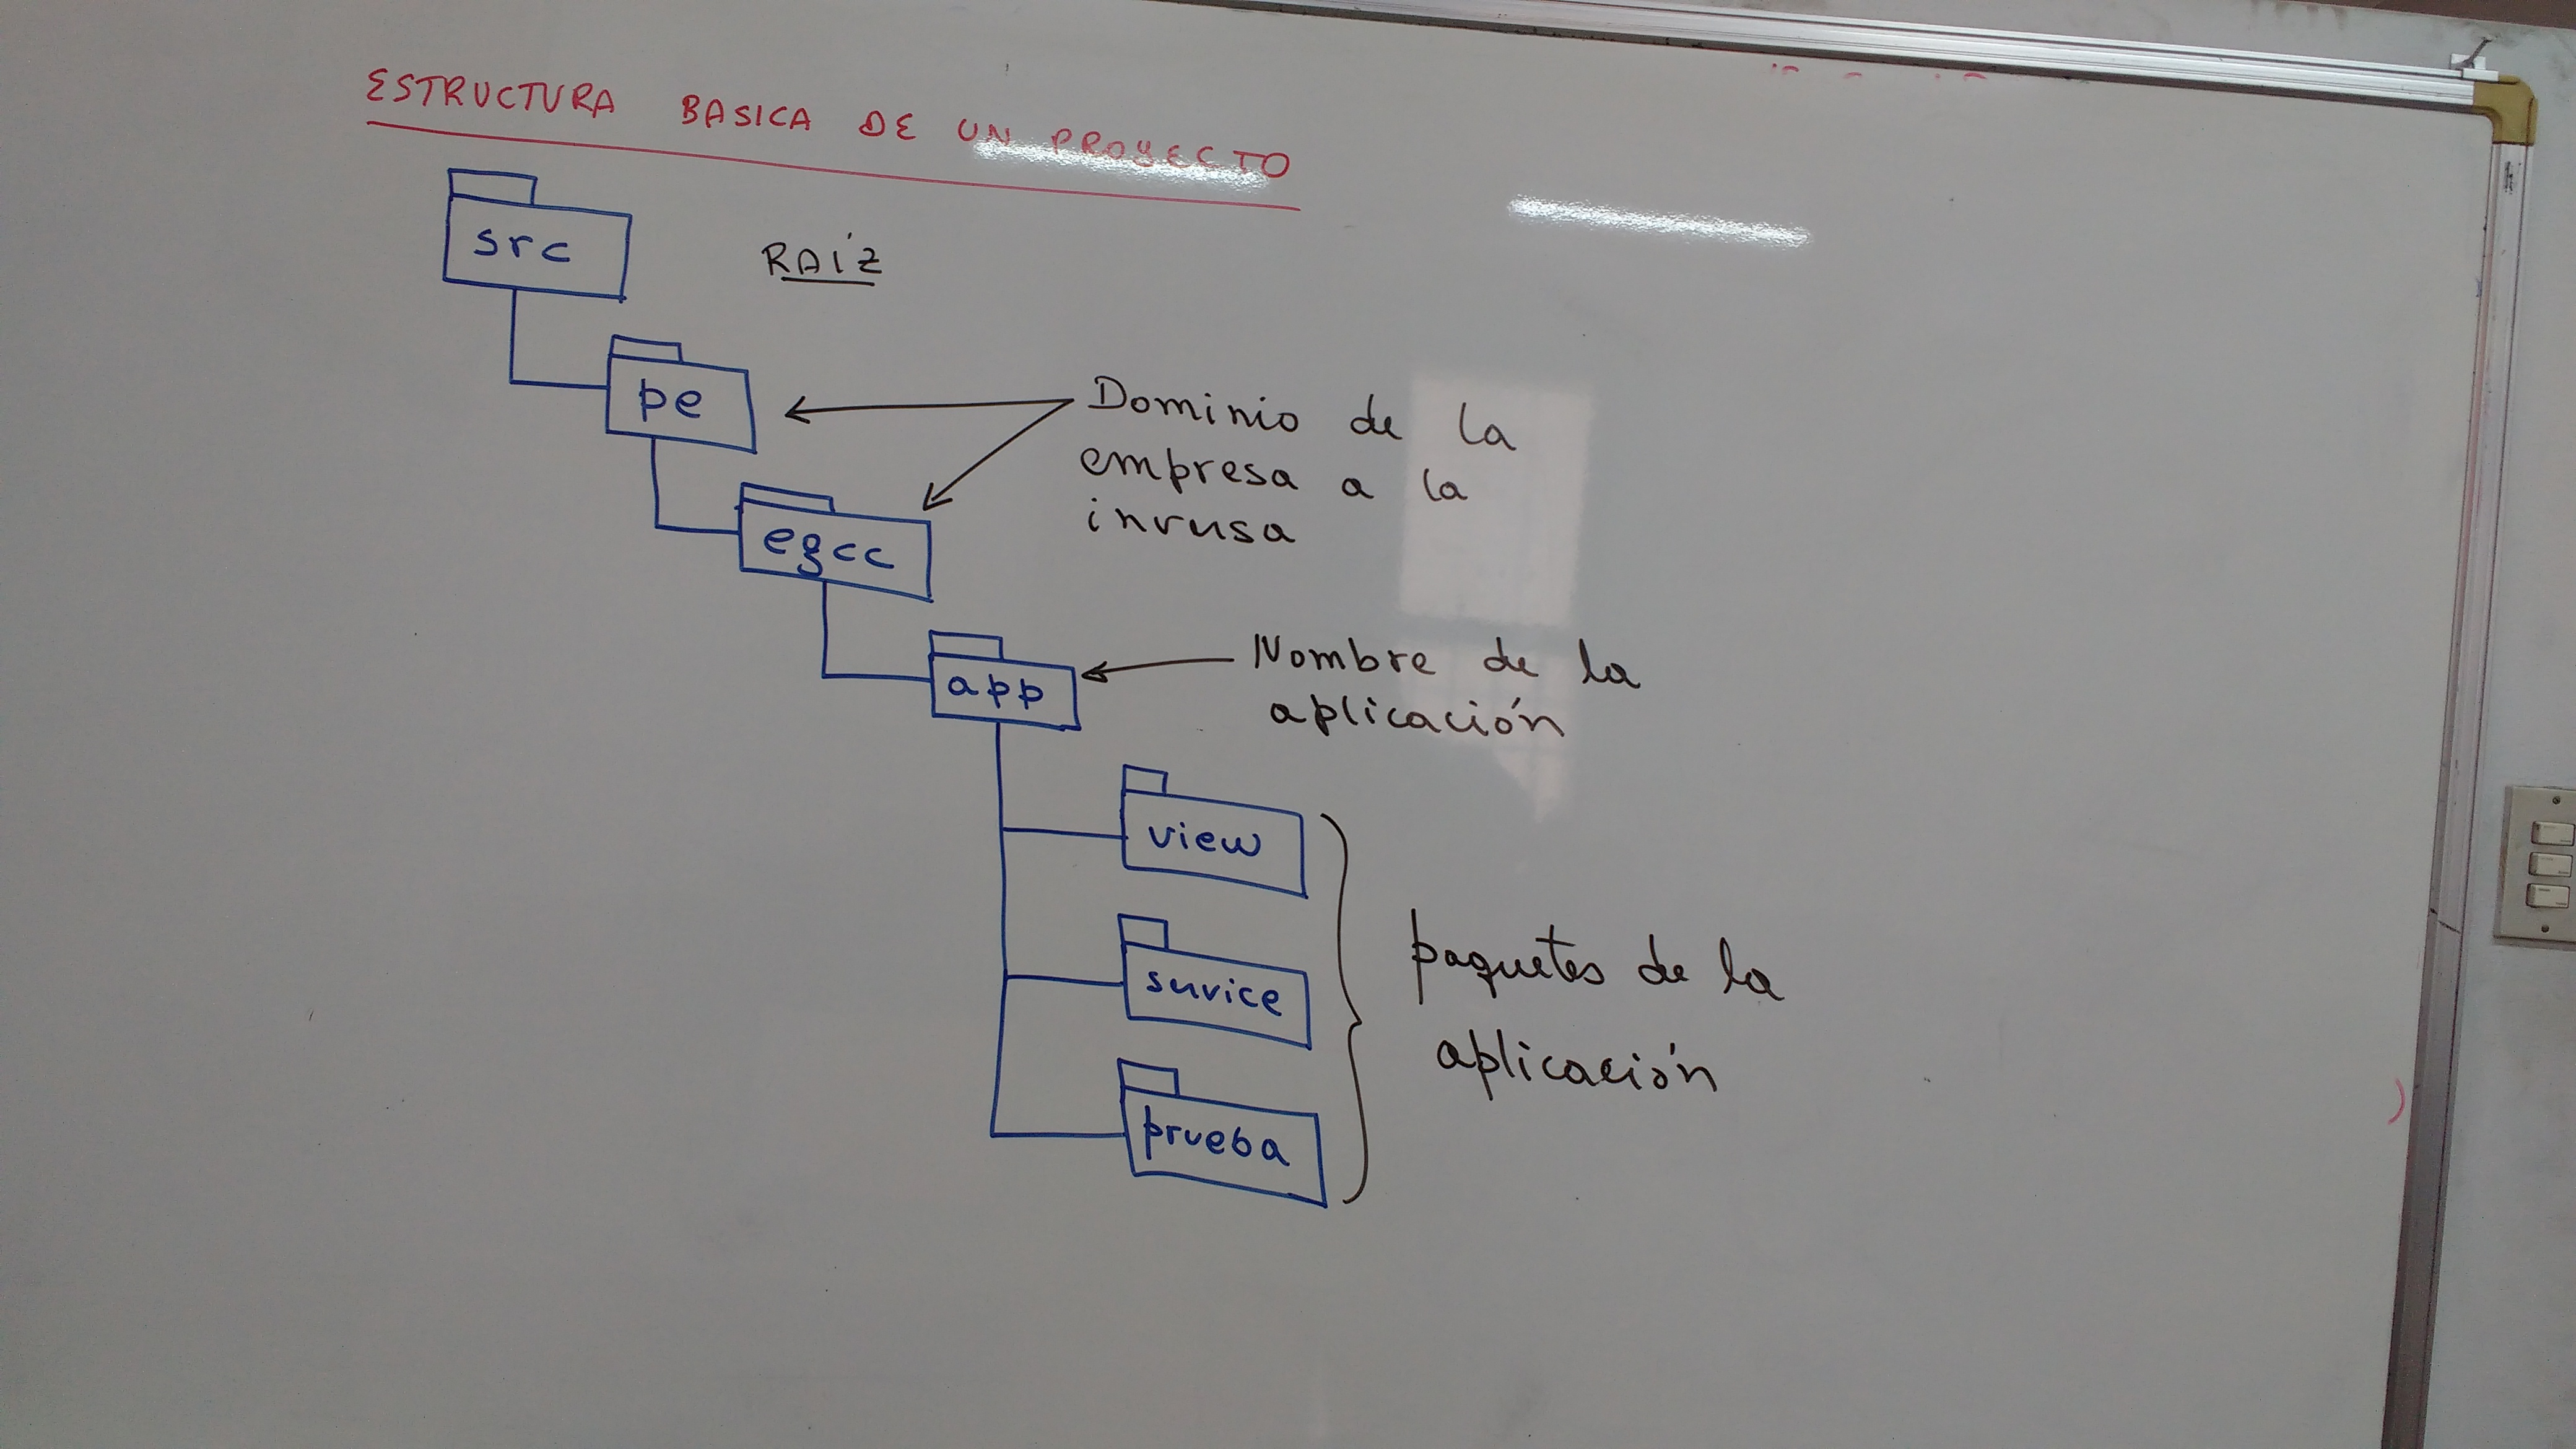 ESTRUCTURA BASICA DE UN PROYECTO
src
RAÍZ
pe
Dominio de la
empresa a la
inversa
egcc
app
Nombre de la
aplicación
view
service
prueba
paquetes de la
aplicación